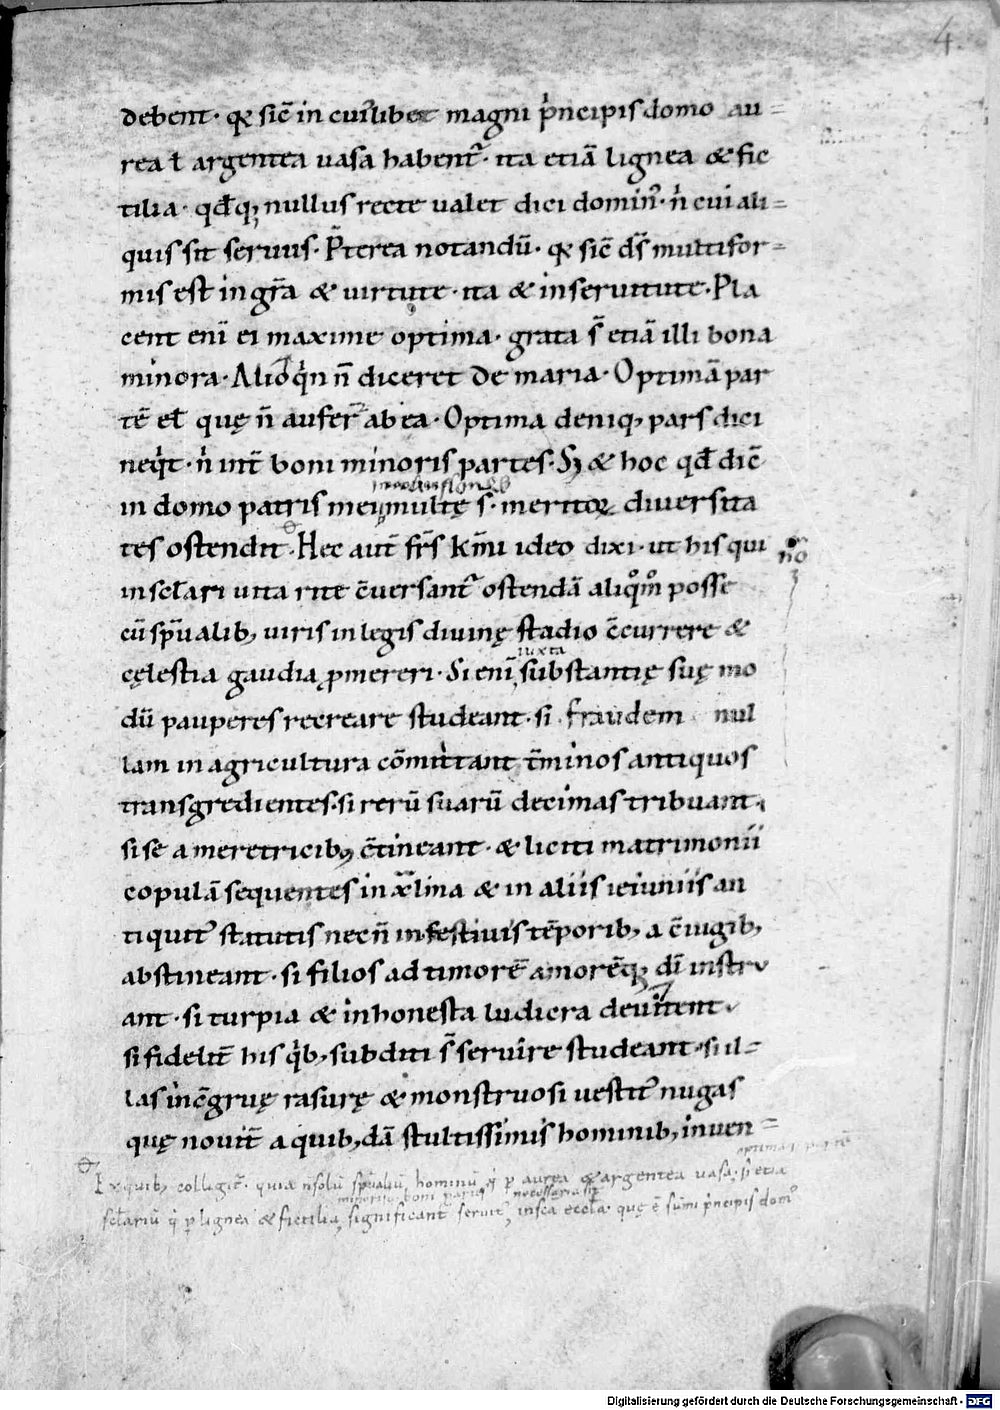 4
debent· q̄ sic̄ in cuiꝰlibet magni pͥncipis domo au=
rea ł argentea uasa habent̄· ita etiā lignea & fic
tilia· qd̄q; nullus recte ualet dici dominꝰ· nͥ cui ali=
quis sit seruus· P̄terea notandū· q̄ sic̄ ds̄ multifor=
mis est in gr̄a & uirtute· ita & in seruitute· Pla
cent enī ei maxime optima· grata s̄ etiā illi bona
minora· Alioqͥn n̄ diceret de maria· Optimā par
tē el̄ quę n̄ aufer̄ ab ea· Optima deniq; pars dici
neqͥt· nͥ int̄ boni minoris partes· S; & hoc qd̄ dic̄
in domo patris mei mansiones multę s̄· meritoꝝ diuersita
tes ostendit· Hec aut̄ fr̄s kīmi ideo dixi· ut his qui
no
in sc̄lari uita rite c̄uersant̄ ostendā aliqͦmͦ posse
cū sp̄ualib; uiris in legis diuinę stadio c̄currere &
cęlestia gaudia ꝓmereri· Si enī iuxta substantię suę mo
dū pauperes recreare studeant· si fraudem nul
lam in agricultura cōmittant t̄minos antiquos
transgredientes· si rerū suarū decimas tribuant·
si se a meretricib; c̄tineant· & liciti matrimonii
copulā sequentes in xl̄ina & in aliis ieiuniis an
tiquit̄ statutis necn̄ in festiuis tēporib; a c̄iugib;
abstineant· si filios ad timorē amorēq; dī instru
ant· si turpia & inhonesta ludicra deuitent·
si fidelit̄ his qͥb; subditi s̄ seruire studeant· si il=
las inc̄gruę rasurę & monstruosi uestit̄ nugas
quę nouit̄ a quib;dā stultissimis hominib; inuen=
Ex quib; colligit̄· quia n̄ solū sp̄ualiū hominū qͥ p̱ aurea & argentea uasa optimā partē· s; etiā
sc̄lariū qͥ p̱ lignea & fictilia minoris boni partes significant̄ seruit̄ necessaria sit in sc̄a eccl̄a· quę ē sūmi pͥncipis domꝰ
Digitalisierung gefördert durch die Deutsche Forschungsgemeinschaft - DFG